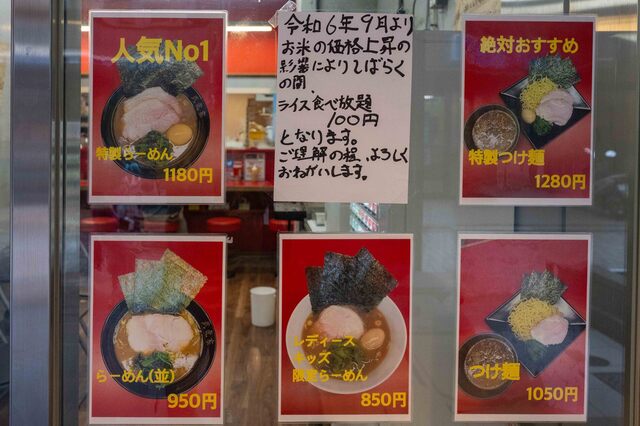 人気No1
特製らーめん
1180円
令和6年9月より
お米の価格上昇の
影響によりしばらく
の間、
ライス食べ放題
100円
となります。
ご理解の程、よろしく
おねがいします。
絶対おすすめ
特製つけ麺
1280円
らーめん(並)
950円
レディース
キッズ
限定らーめん
850円
つけ麺
1050円